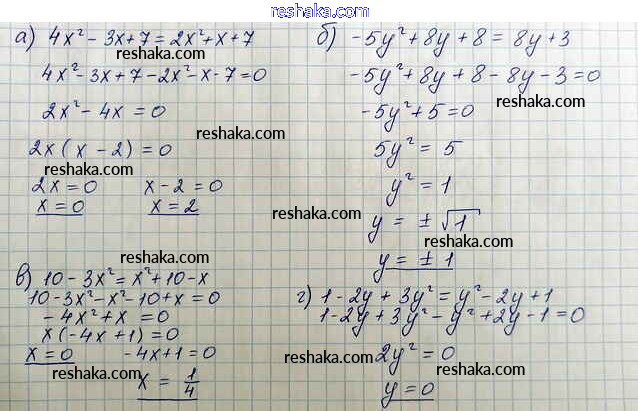 reshaka.com
а) 4x² - 3x + 7 = 2x² + x + 7
4x² - 3x + 7 - 2x² - x - 7 = 0
2x² - 4x = 0
reshaka.com
2x (x - 2) = 0
reshaka.com
2x = 0 x - 2 = 0
x = 0 x = 2
reshaka.com
б) -5y² + 8y + 8 = 8y + 3
reshaka.com
-5y² + 8y + 8 - 8y - 3 = 0
-5y² + 5 = 0
reshaka.com
5y² = 5
y² = 1
reshaka.com
y = ± √1
y = ± 1
reshaka.com
reshaka.com
в) 10 - 3x² = x² + 10 - x
10 - 3x² - x² - 10 + x = 0
- 4x² + x = 0
reshaka.com
x (-4x + 1) = 0
x = 0 -4x + 1 = 0
reshaka.com
x = 1/4
reshaka.com
г) 1 - 2y + 3y² = y² - 2y + 1
1 - 2y + 3y² - y² + 2y - 1 = 0
reshaka.com
2y² = 0
reshaka.com
y = 0